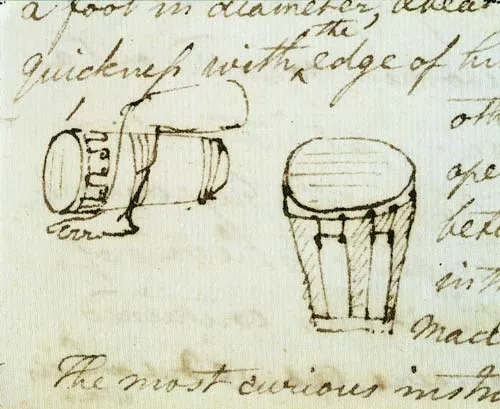 a foot in diameter, a
quickness with the edge of h
oth
ope
betw
in th
Mad
The most curious instr